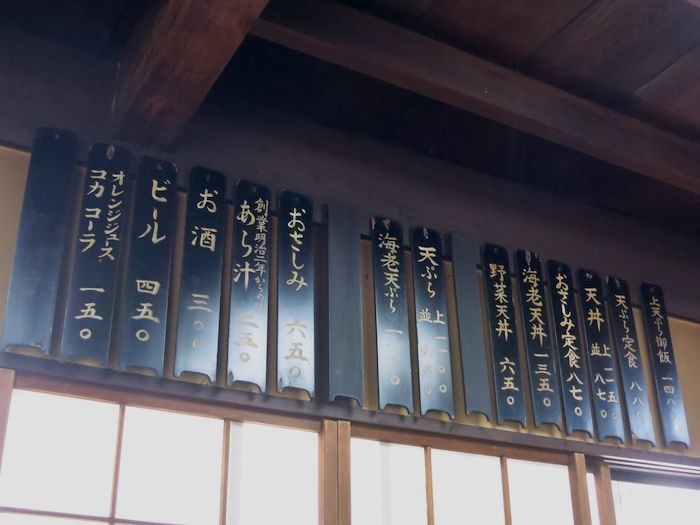 上天ぷら御飯 一四八〇
天ぷら定食 八八〇
天丼 上 一一五〇
並 八七〇
おさしみ定食 八七〇
海老天丼 一三五〇
野菜天丼 六五〇
天ぷら 上 一一〇〇
並 六五〇
海老天ぷら
おさしみ 六五〇
創業明治二年からの
あら汁 二五〇
お酒 三〇〇
ビール 四五〇
オレンジジュース
コカコーラ 一五〇